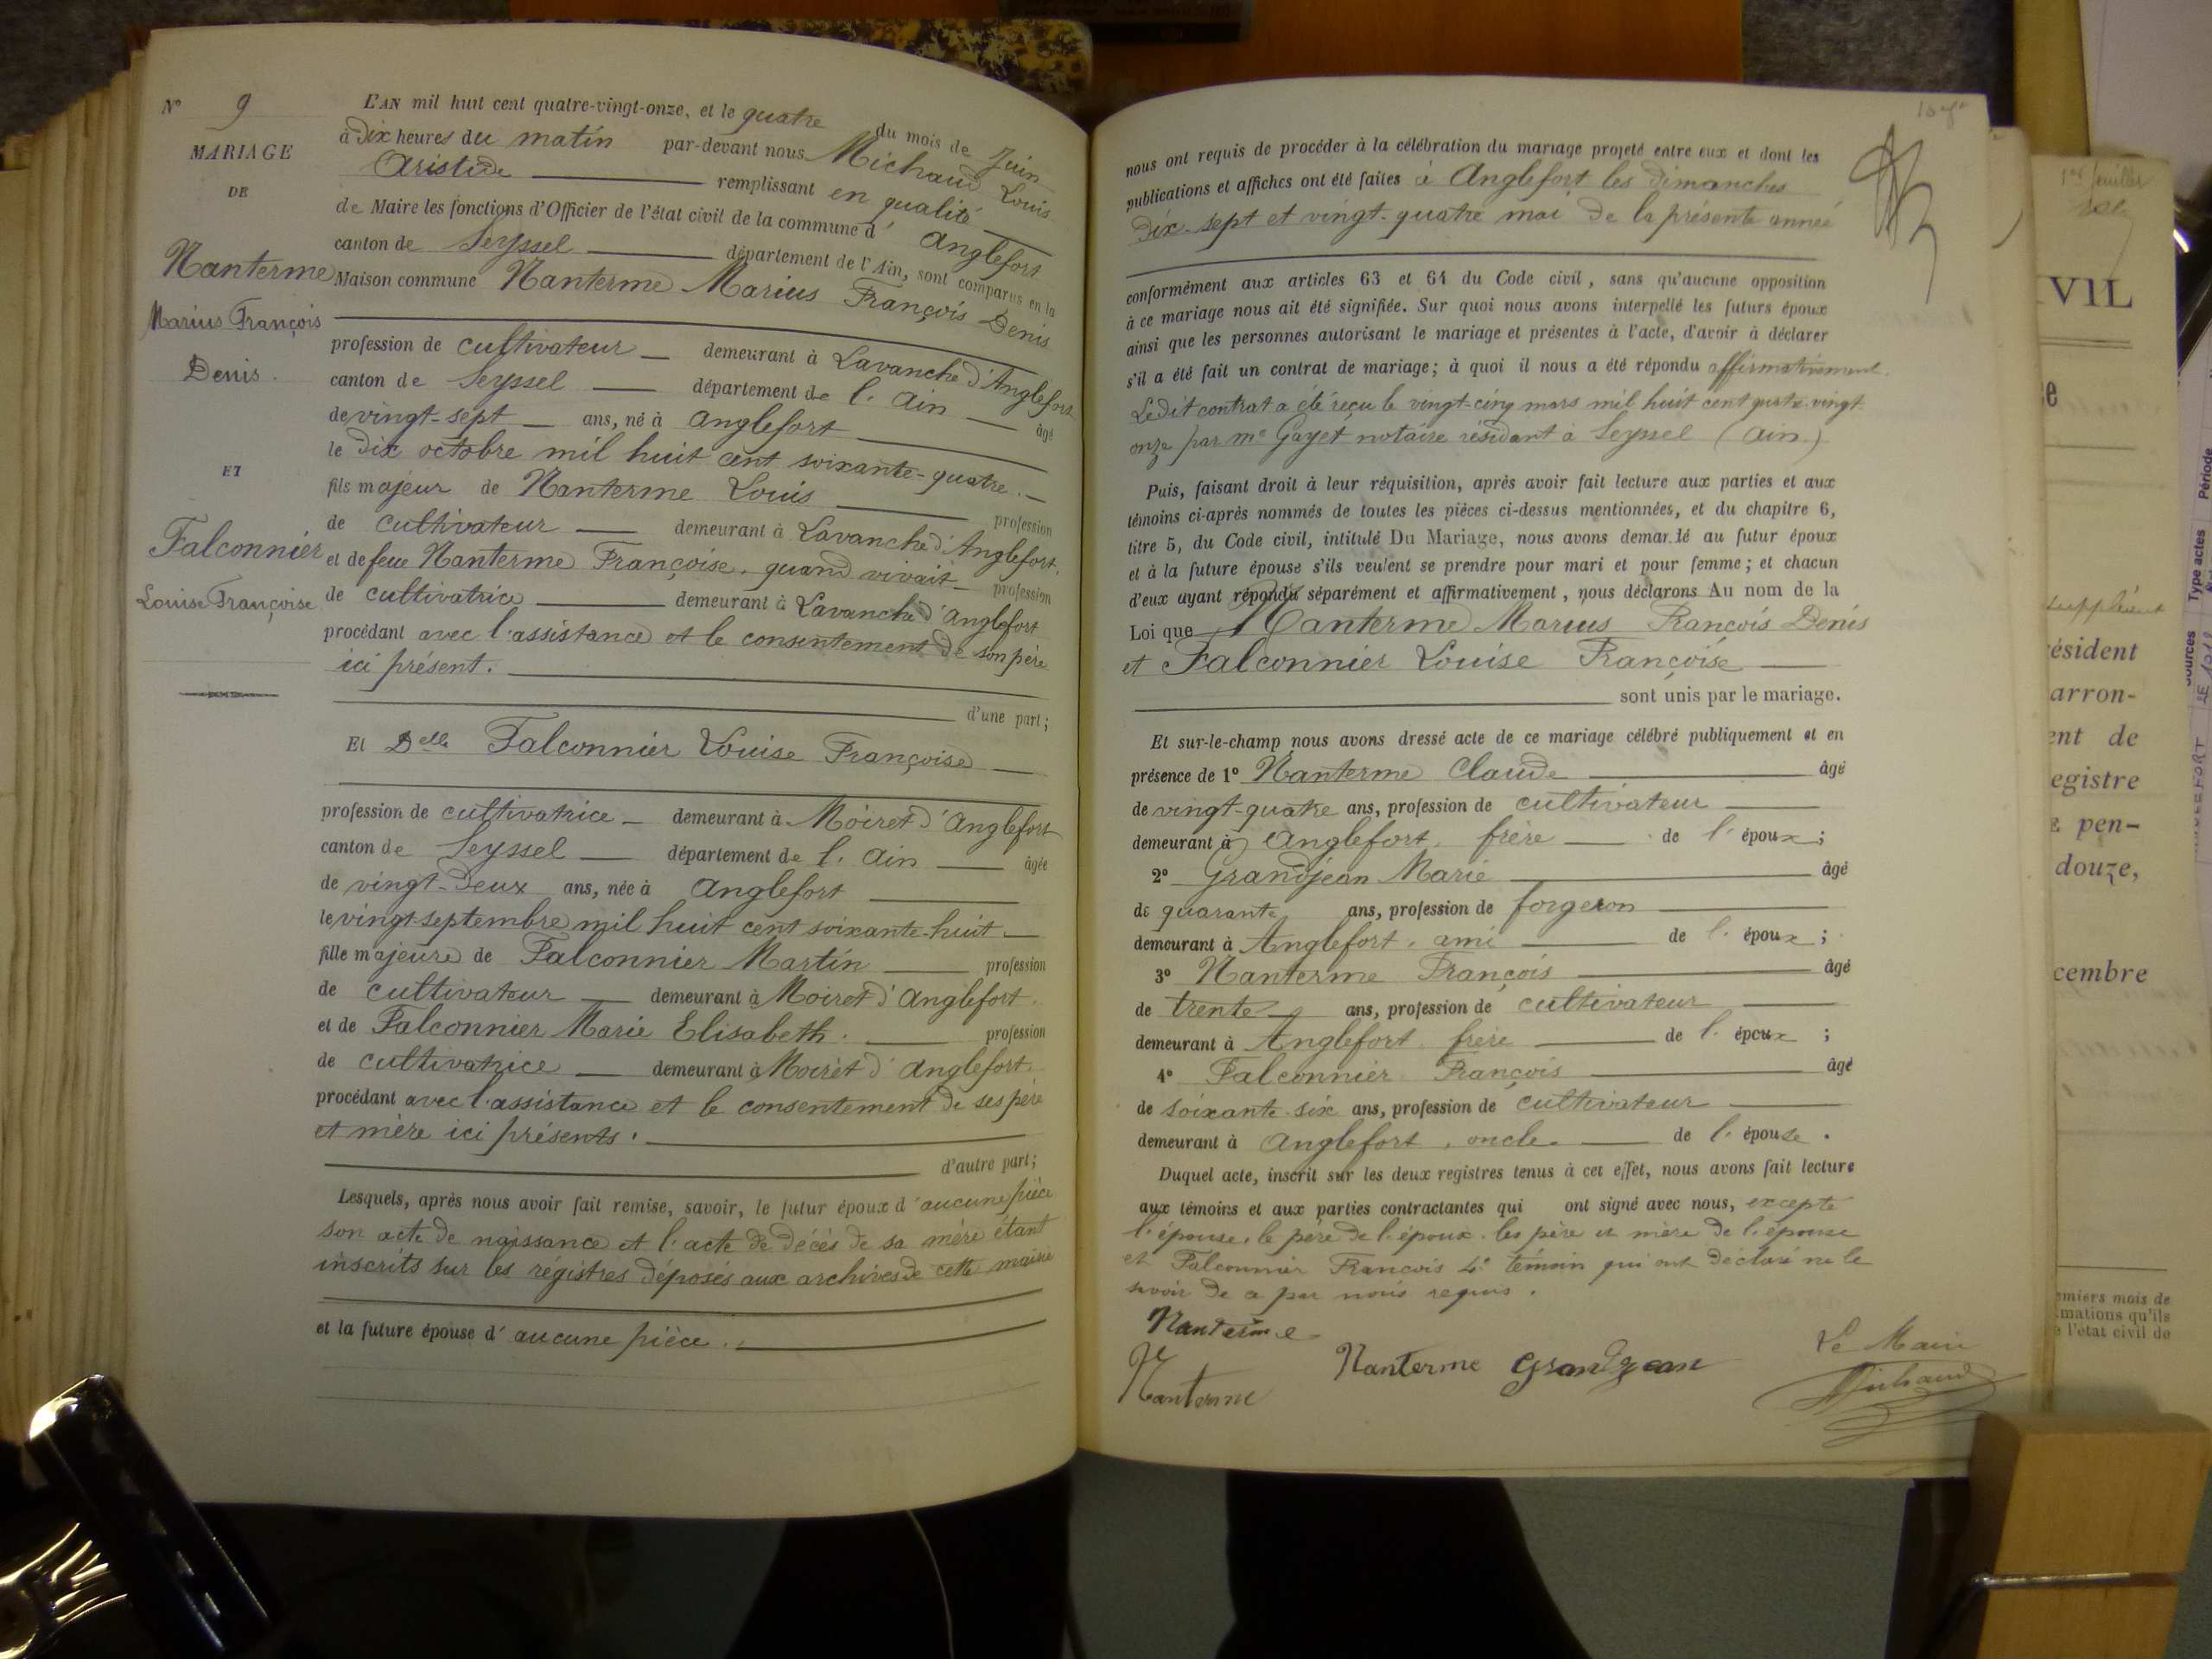 N° 9
MARIAGE
DE
Nanterme
Marius François
Denis.
ET
Falconnier
Louise Françoise
L'AN mil huit cent quatre-vingt-onze, et le quatre du mois de Juin
à Dix heures du matin par-devant nous Michaud Louis
Aristide remplissant en qualité
de Maire les fonctions d'Officier de l'état civil de la commune d' Anglefort
canton de Seyssel département de l'Ain, sont comparus en la
Maison commune Nanterme Marius François Denis
profession de cultivateur demeurant à Lavanche d'Anglefort
canton de Seyssel département de l'Ain âgé
de vingt-sept ans, né à Anglefort
le Dix octobre mil huit cent soixante-quatre.
fils majeur de Nanterme Louis profession
de cultivateur demeurant à Lavanche d'Anglefort.
et de feue Nanterme Françoise. quand vivait profession
de cultivatrice demeurant à Lavanche d'Anglefort
procédant avec l'assistance et le consentement de son père
ici présent.
d'une part;
Et Delle Falconnier Louise Françoise
profession de cultivatrice demeurant à Moiret d'Anglefort
canton de Seyssel département de l'Ain âgée
de vingt-deux ans, née à Anglefort
le vingt septembre mil huit cent soixante-huit
fille majeure de Falconnier Martin profession
de cultivateur demeurant à Moiret d'Anglefort.
et de Falconnier Marie Elisabeth. profession
de cultivatrice demeurant à Moiret d'Anglefort.
procédant avec l'assistance et le consentement de ses père
et mère ici présents.
d'autre part;
Lesquels, après nous avoir fait remise, savoir, le futur époux d'aucune pièce
son acte de naissance et l'acte de décès de sa mère étant
inscrits sur les régistres déposés aux archives de cette mairie
et la future épouse d'aucune pièce.
nous ont requis de procéder à la célébration du mariage projeté entre eux et dont les
publications et affiches ont été faites à Anglefort les dimanches
dix-sept et vingt-quatre mai de la présente année
conformément aux articles 63 et 64 du Code civil, sans qu'aucune opposition
à ce mariage nous ait été signifiée. Sur quoi nous avons interpellé les futurs époux
ainsi que les personnes autorisant le mariage et présentes à l'acte, d'avoir à déclarer
s'il a été fait un contrat de mariage; à quoi il nous a été répondu affirmativement.
Ledit contrat a été reçu le vingt-cinq mars mil huit cent quatre-vingt
onze par Me Gayet notaire résidant à Seyssel (Ain)
Puis, faisant droit à leur réquisition, après avoir fait lecture aux parties et aux
témoins ci-après nommés de toutes les pièces ci-dessus mentionnées, et du chapitre 6,
titre 5, du Code civil, intitulé Du Mariage, nous avons demandé au futur époux
et à la future épouse s'ils veulent se prendre pour mari et pour femme; et chacun
d'eux ayant répondu séparément et affirmativement, nous déclarons Au nom de la
Loi que Nanterme Marius François Denis
et Falconnier Louise Françoise
sont unis par le mariage.
Et sur-le-champ nous avons dressé acte de ce mariage célébré publiquement et en
présence de 1° Nanterme Claude âgé
de vingt-quatre ans, profession de cultivateur
demeurant à Anglefort. frère de l'époux;
2° Grandjean Marie âgé
de quarante ans, profession de forgeron
demeurant à Anglefort. ami de l'époux;
3° Nanterme François âgé
de trente ans, profession de cultivateur
demeurant à Anglefort frère de l'époux;
4° Falconnier François âgé
de soixante-six ans, profession de cultivateur
demeurant à Anglefort, oncle de l'épouse.
Duquel acte, inscrit sur les deux registres tenus à cet effet, nous avons fait lecture
aux témoins et aux parties contractantes qui ont signé avec nous, excepté
l'épouse, le père de l'époux. les père et mère de l'épouse
et Falconnier François 4e témoin qui ont déclaré ne le
savoir de ce par nous requis.
Nanterme
Nanterme
Nanterme Grandjean
Le Maire
Michaud
VIL
supplément
résident
arron-
ent de
egistre
pen-
douze,
cembre
emiers mois de
mations qu'ils
l'état civil de
Type actes
Période
Sources